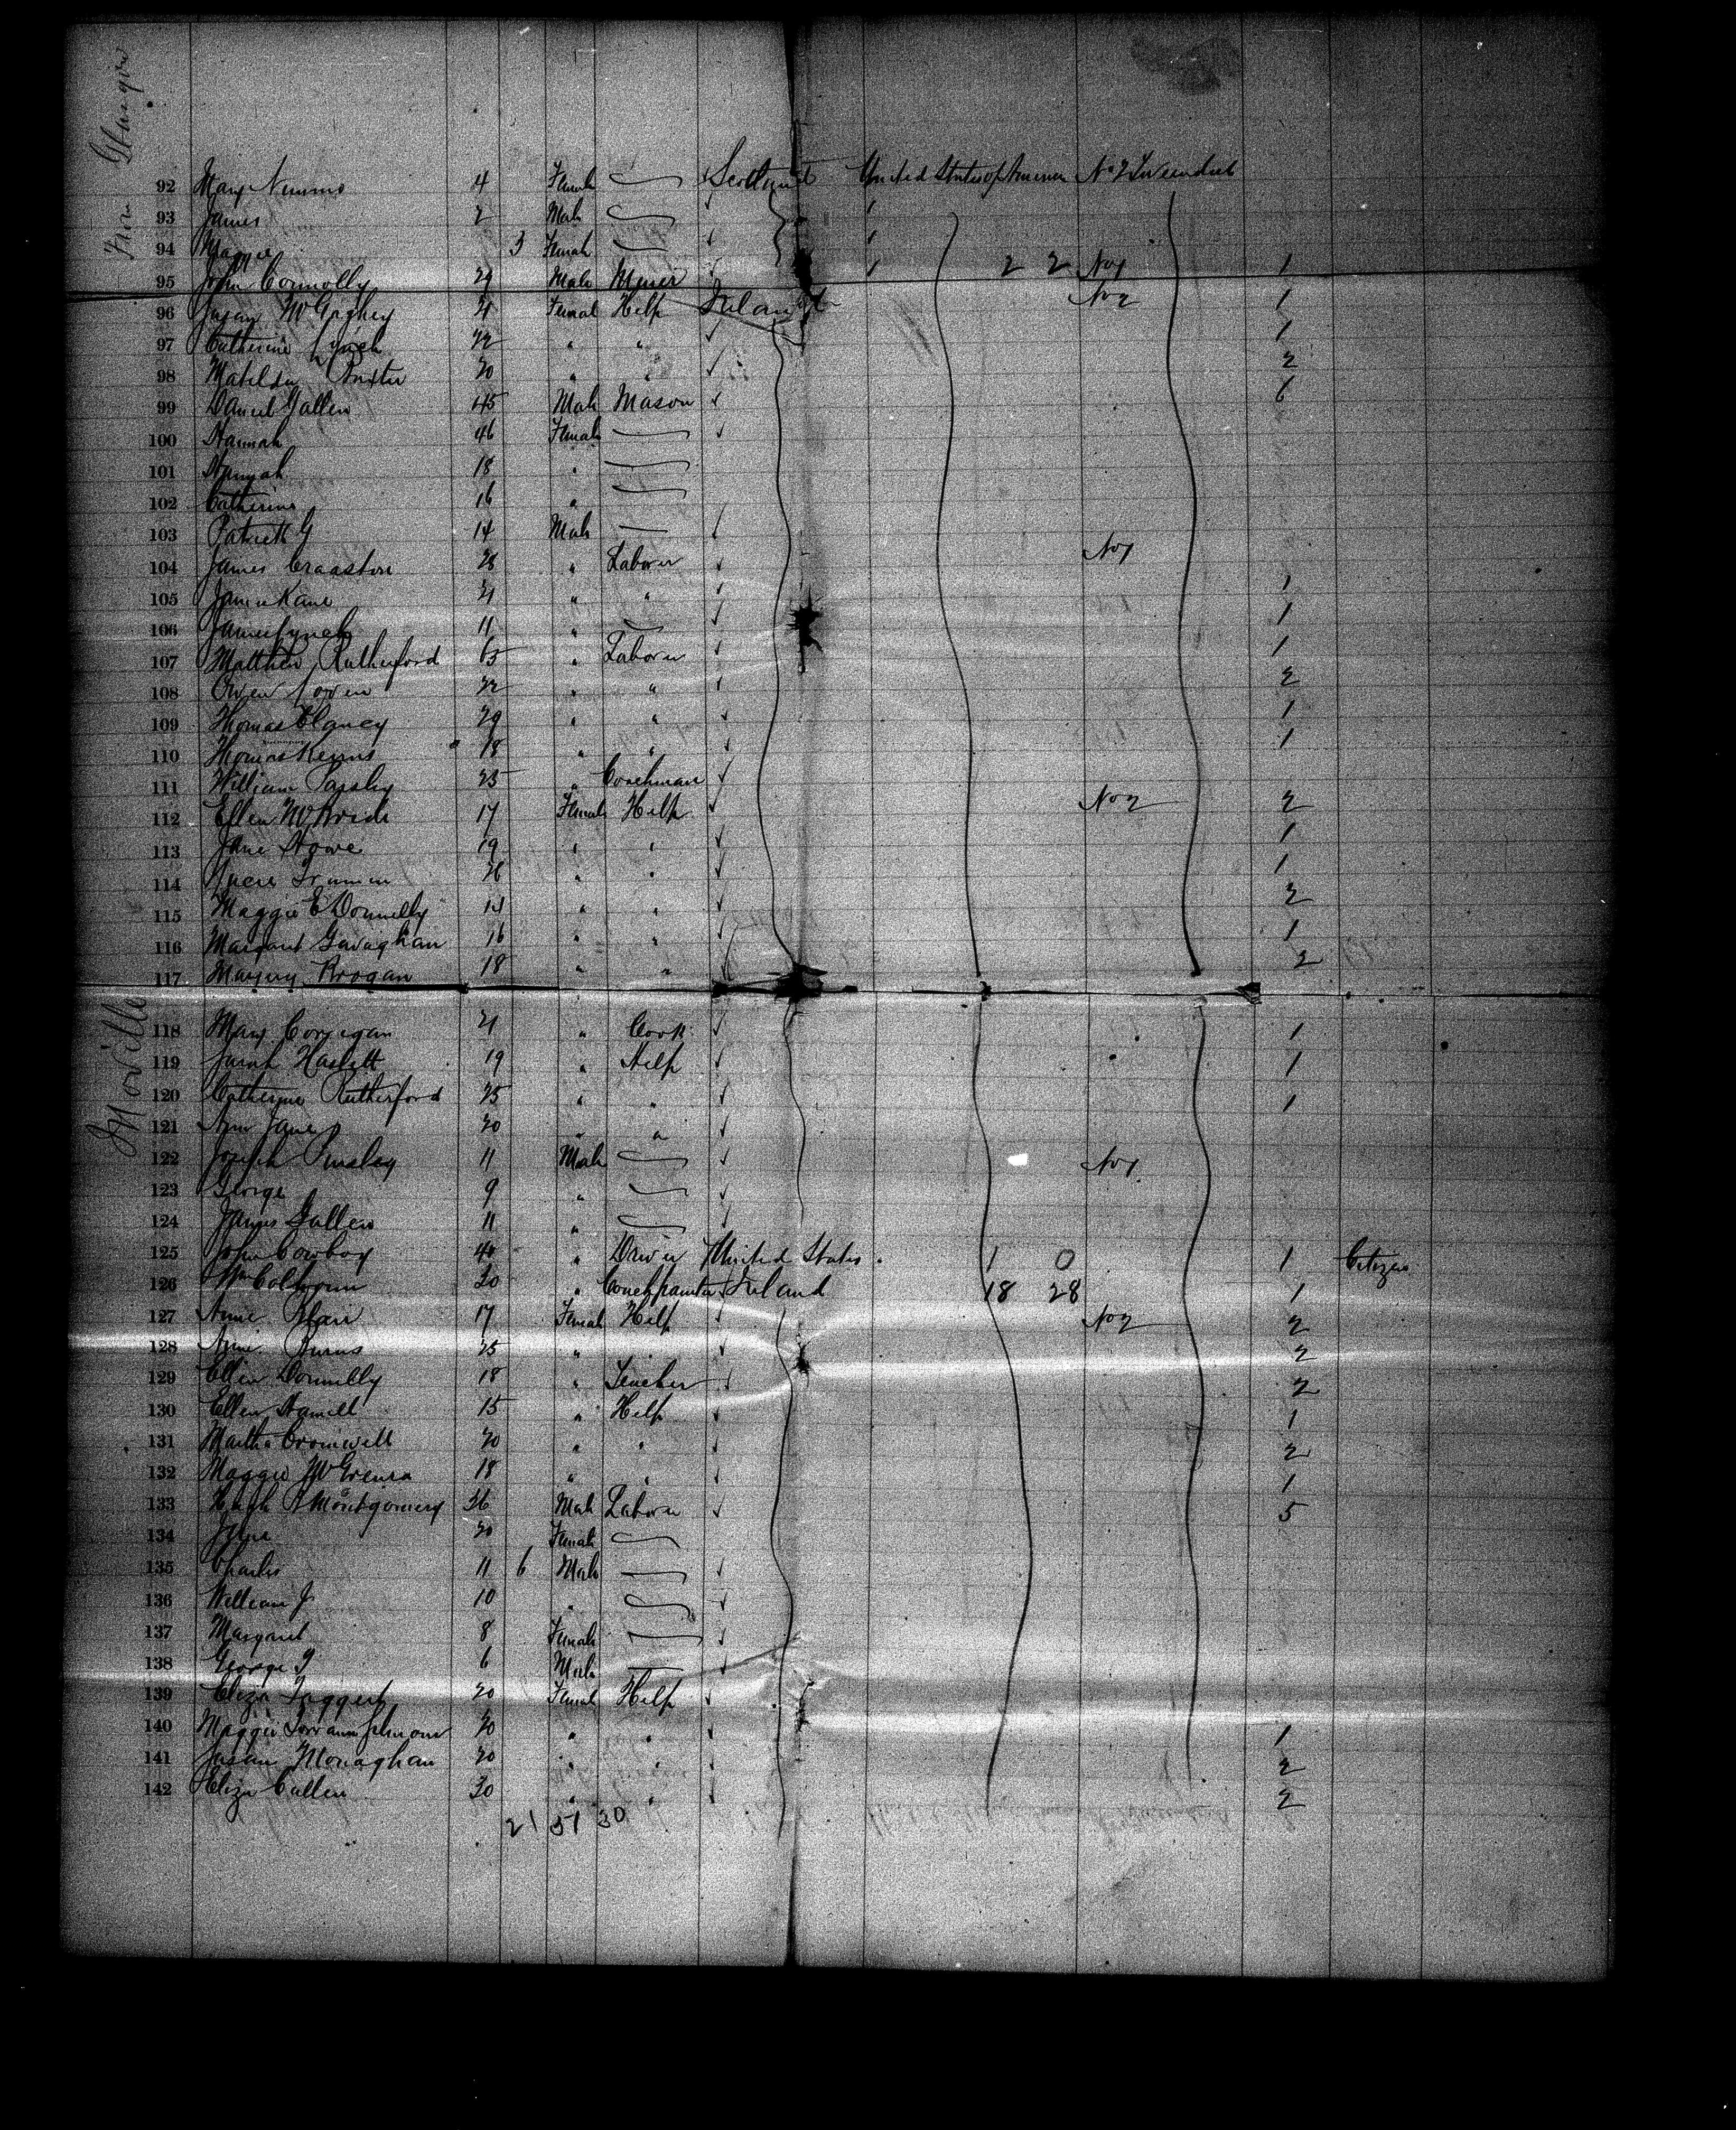 From Glasgow
92 Mary Nimmo 4 Female Scotland United States of America No 2
93 James 2 Male
94 Maggie 3 Female
95 John Connolly 29 Male Miner 2 2 No 1 1
96 Susan 21 Female Help Ireland No 2 1
97 Catherine Lynch 22 " " 1
98 Matilda 20 " " 2
99 Daniel Gallen 45 Male Mason 6
100 Hannah 46 Female
101 Hannah 18 "
102 Catherine 16 "
103 Patrick G 14 Male
104 James Craaston 28 " Laborer No 1
105 James Kane 21 " " 1
106 James Lynch 11 " 1
107 Matthew Rutherford 65 " Laborer 1
108 Owen 22 " " 2
109 Thomas Clancy 29 " " 1
110 Thomas Kerins 18 " " 1
111 William 25 " Coachman
112 Ellen McBride 17 Female Help No 2 2
113 Jane Howe 19 " " 1
114 26 " " 1
115 Maggie E Donnelly 14 " " 2
116 Margaret Gavaghan 16 " " 1
117 Margery Brogan 18 " " 2
Moville
118 Mary Corrigan 21 " Cook 1
119 Sarah Haslett 19 " Help 1
120 Catherine Rutherford 25 " " 1
121 Ann Jane 20 " "
122 Joseph 11 Male No 1
123 George 9 "
124 James Gallen 11 "
125 John Conboy 40 " Driver United States 1 0 1 Citizen
126 Wm Calhoun 30 " Coachpainter Ireland 18 28 1
127 Annie Blair 17 Female Help No 2 2
128 Annie Burns 25 " 2
129 Ellen Donnelly 18 " Teacher 2
130 Ellen Hamill 15 " Help 1
131 Martha Cromwell 20 " " 2
132 Maggie 18 " " 1
133 Hugh Montgomery 36 Male Laborer 5
134 Jane 30 Female
135 Charles 11 6 Male
136 William J 10 "
137 Margaret 8 Female
138 George 6 Male
139 Eliza Taggert 20 Female Help
140 Maggie 20 " " 1
141 Susan Monaghan 20 " " 2
142 Eliza Cullen 30 " " 2
21 51 30